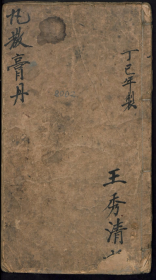 丁巳年製
王秀清
丸散膏丹